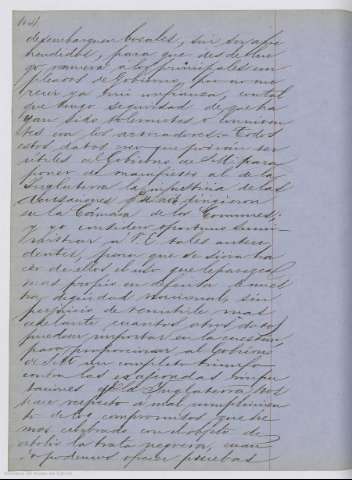 desembarquen bozales, sin ser apre
hendidos, para que desde lue
go remueva a los principales em
pleados de Gobierno, que no me
recen ya mi confianza, contal
que tenga seguridad de que ha
yan sido tolerantes o conniven
tes con los armadores. Todos
estos datos creo que podrian ser
utiles al Gobierno de S.M. para
poner de manifiesto al de la
Inglaterra la injusticia de las
acusaciones que nos dirigieron
en la Cámara de los Comunes,
y yo considero oportuno sumi-
nistrar á V.E. tales antece
dentes, para que se sirva ha
cer de ellos el uso que le parezca
mas propio en defensa de nues
tra dignidad nacional, sin
perjuicio de remitirle mas
adelante cuantos otros datos
puedan importar en la cuestion,
para proporcionar al Gobierno
de S.M. un completo triunfo
contra las exageradas impu
taciones que la Inglaterra nos
hace respecto á mal cumplimien
to de los compromisos que he
mos celebrado con objeto de
abolir la trata negrera, cuan
do podemos ofrecer pruebas